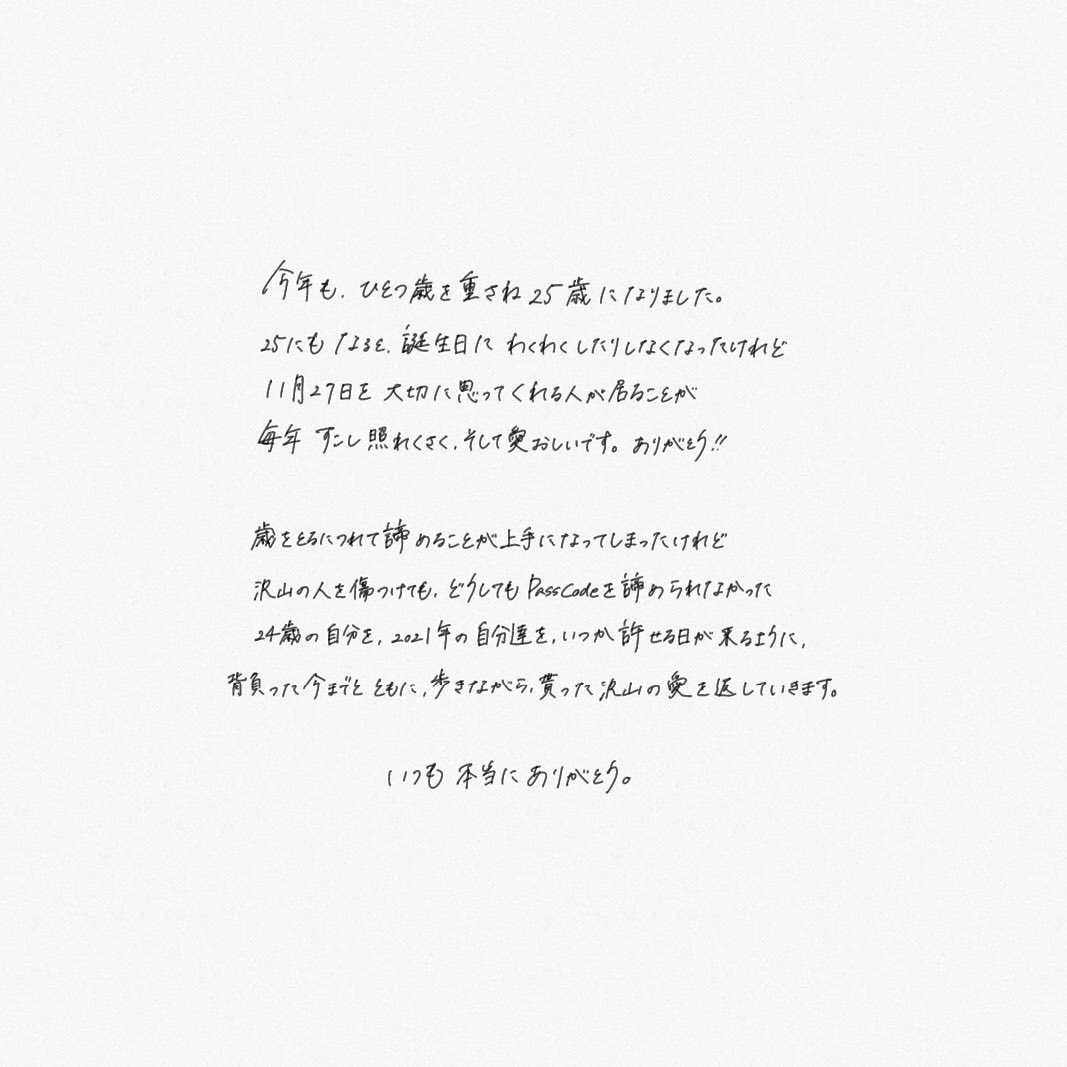 今年も、ひとつ歳を重さね25歳になりました。
25にもなると、誕生日にわくわくしたりしなくなったけれど
11月27日を大切に思ってくれる人が居ることが
毎年すこし照れくさく、そして愛おしいです。ありがとう!!
歳をとるにつれて諦めることが上手になってしまったけれど
沢山の人を傷つけても、どうしてもPassCodeを諦められなかった
24歳の自分を、2021年の自分達を、いつか許せる日が来るように、
背負った今までとともに、歩きながら、貰った沢山の愛を返していきます。
いつも本当にありがとう。